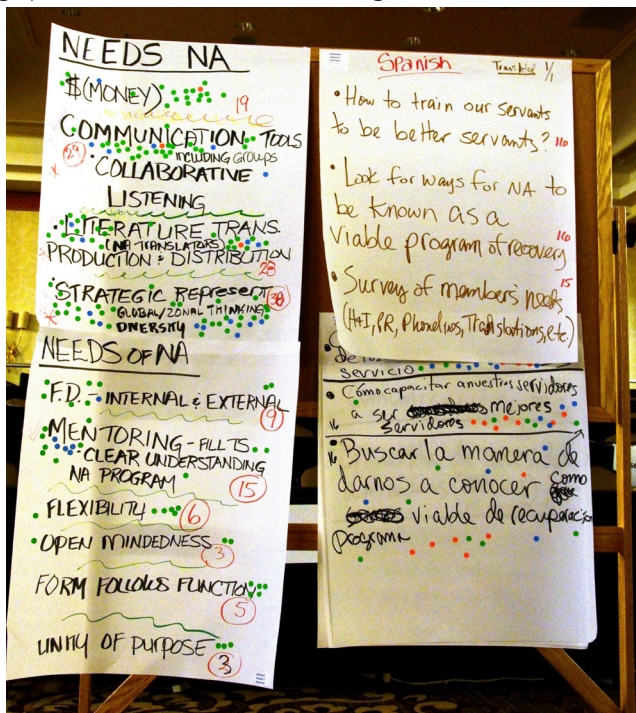 NEEDS NA
$(MONEY)
19
COMMUNICATION TOOLS
29
INCLUDING GROUPS
COLLABORATIVE
LISTENING
• LITERATURE TRANS.
(NA TRANSLATORS)
PRODUCTION & DISTRIBUTION
28
• STRATEGIC Represent
38
GLOBAL/ZONAL THINKING
DIVERSITY
NEEDS OF NA
F.D. - INTERNAL & EXTERNAL
9
MENTORING - FILL TS
- CLEAR UNDERSTANDING
NA PROGRAM
15
• FLEXIBILITY
6
• OPEN MINDEDNESS
3
FORM FOLLOWS FUNCTION
5
UNITY OF PURPOSE
3
Spanish
Translated 1/1
• How to train our servants
to be better servants? 16
• Look for ways for NA to
be known as a
viable program of recovery
16
• Survey of members' needs
15
(H+I, PR, Phonelines, Translations, etc.)
servicio
• Cómo capacitar a nuestros servidores
a ser mejores
16 servidores
16 • Buscar la manera de
darnos a conocer como
viable de recuperacion
programa